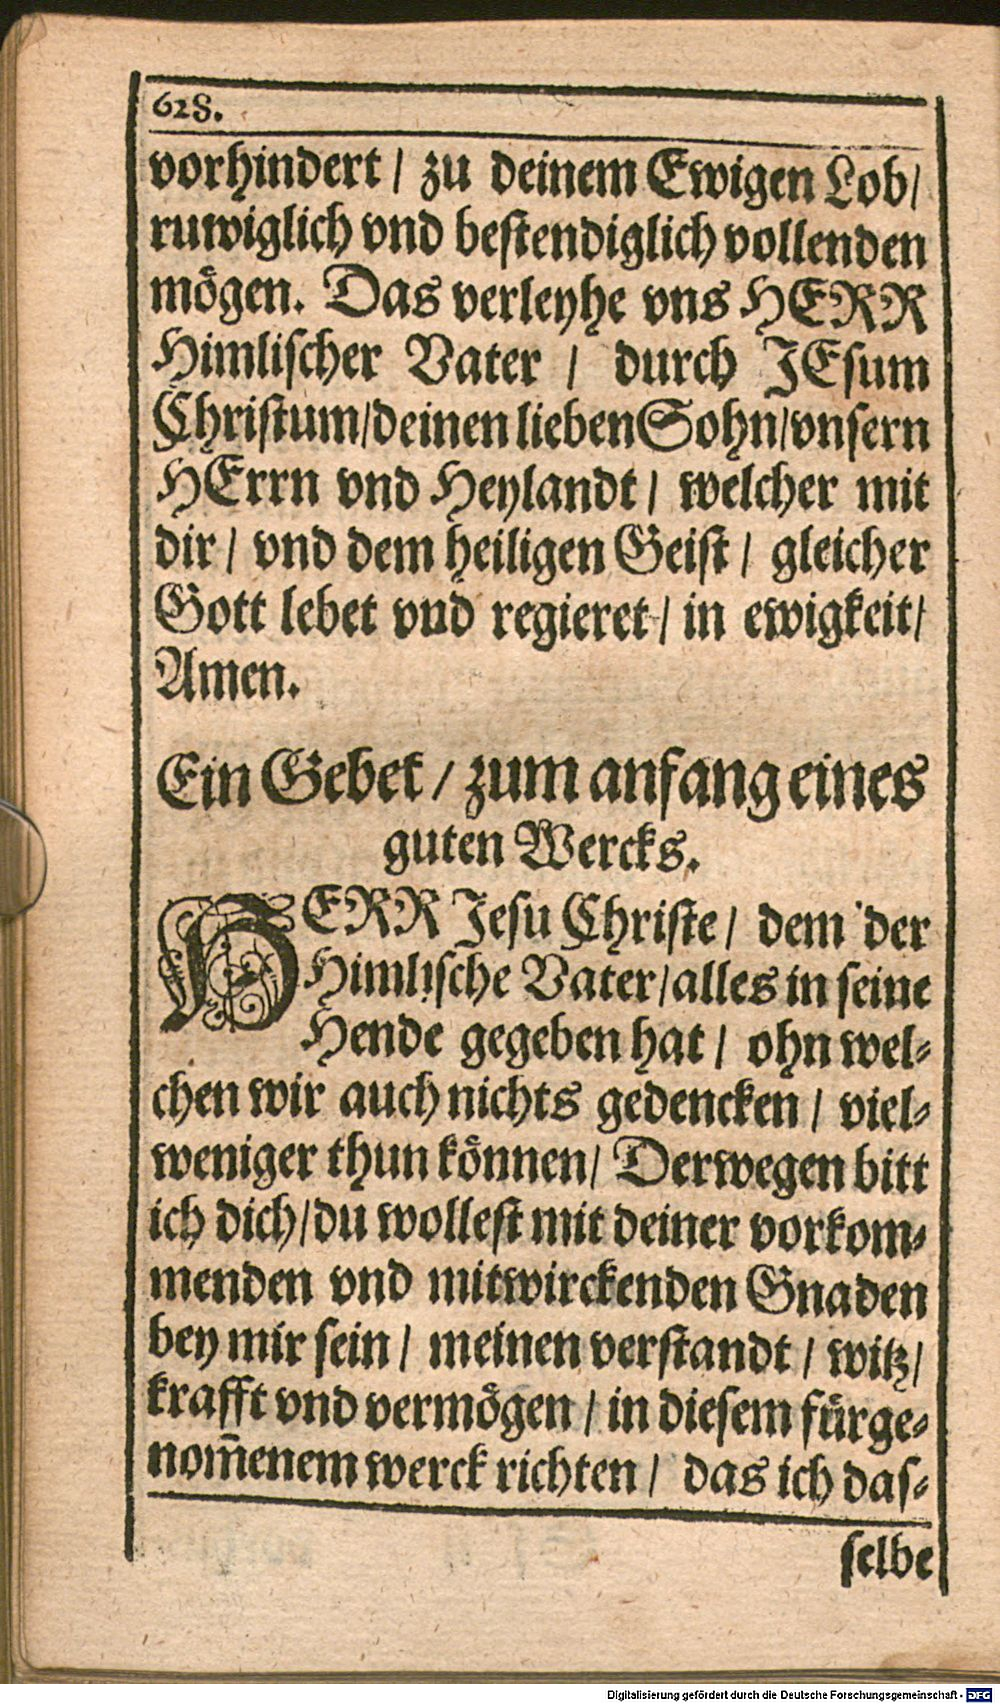 628.
vorhindert / zu deinem Ewigen Lob /
ruwiglich vnd bestendiglich vollenden
mögen. Das verleyhe vns HERR
Himlischer Vater / durch JEsum
Christum / deinen lieben Sohn / vnsern
HErrn vnd Heylandt / welcher mit
dir / vnd dem heiligen Geist / gleicher
Gott lebet vnd regieret / in ewigkeit /
Amen.
Ein Gebet / zum anfang eines
guten Wercks.
HERR Jesu Christe / dem der
Himlische Vater / alles in seine
Hende gegeben hat / ohn wel⸗
chen wir auch nichts gedencken / viel⸗
weniger thun können / Derwegen bitt
ich dich / du wollest mit deiner vorkom⸗
menden vnd mitwirckenden Gnaden
bey mir sein / meinen verstandt / witz /
krafft vnd vermögen / in diesem fürge⸗
nom̃enem werck richten / das ich das⸗
selbe
Digitalisierung gefördert durch die Deutsche Forschungsgemeinschaft - DFG